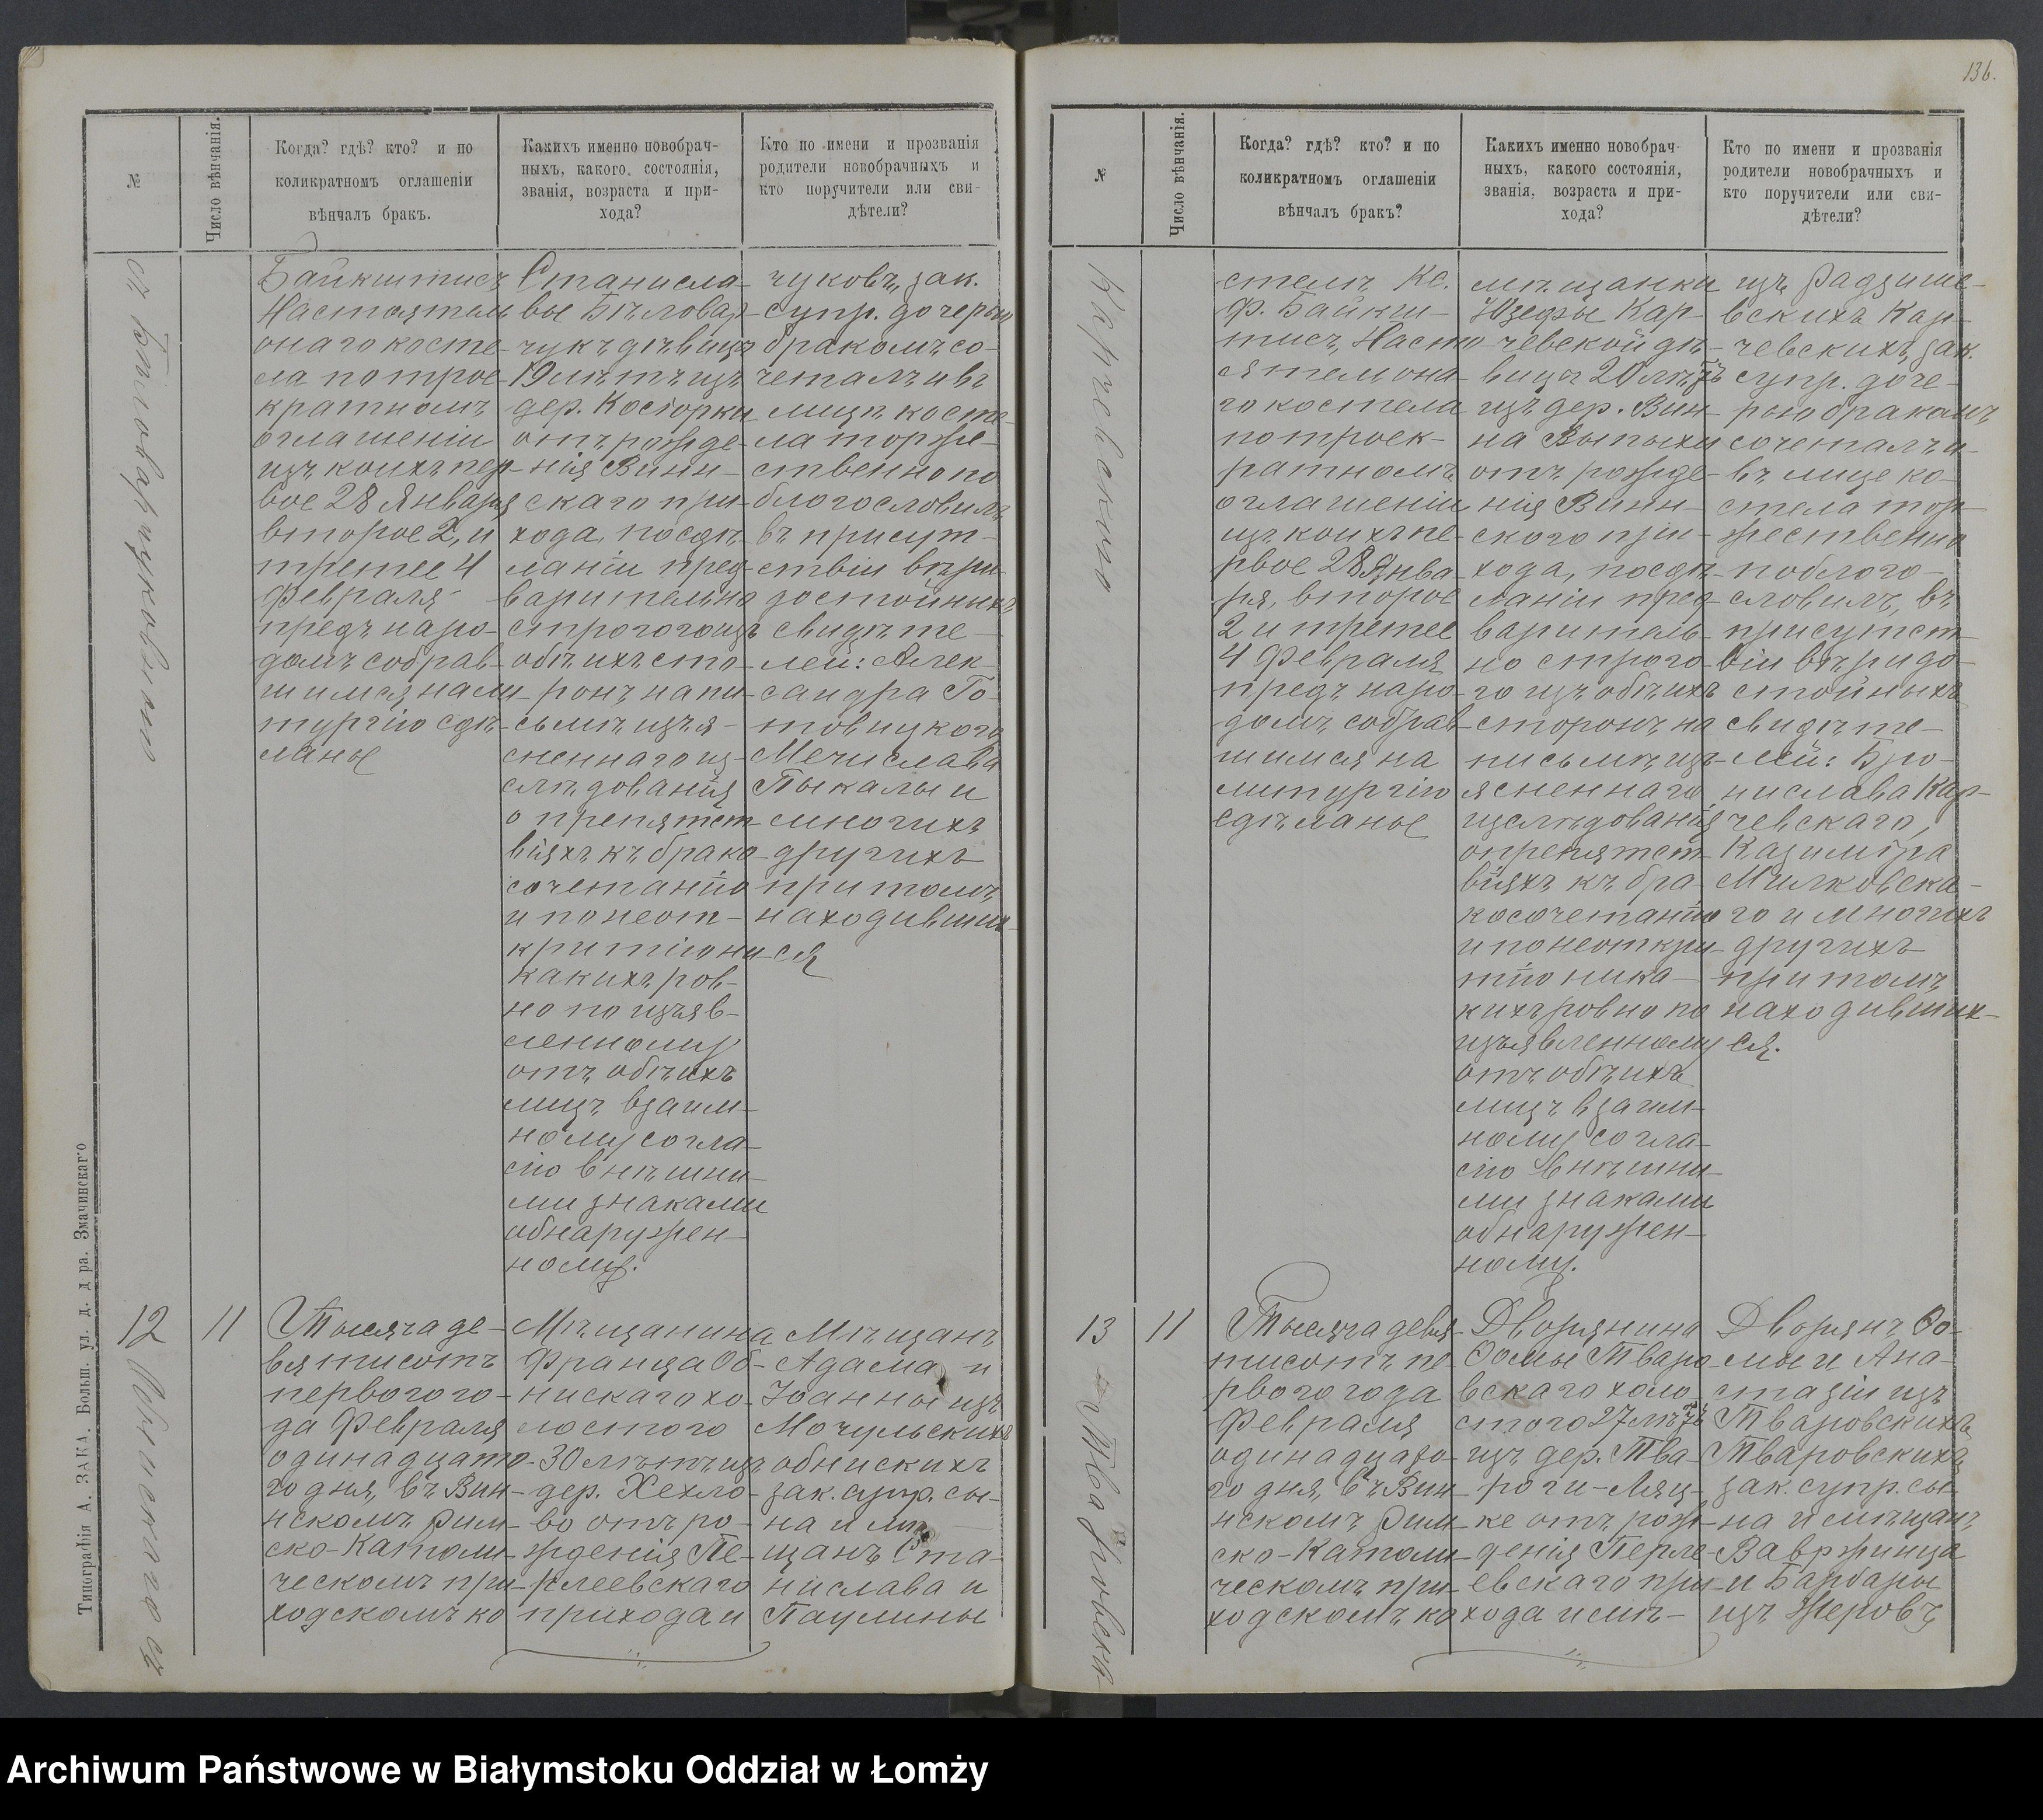 136.
№
Число вѣнчанія.
Когда? гдѣ? кто? и по
коликратномъ оглашеніи
вѣнчалъ бракъ.
Какихъ именно новобрач-
ныхъ, какого состоянія,
званія, возраста и при-
хода?
Кто по имени и прозванія
родители новобрачныхъ и
кто поручители или сви-
дѣтели?
Байкштисъ
Настоятель
онаго косте-
ла по трое-
кратномъ
оглашеніи
изъ коихъ пер-
вое 28 Января
второе 2, и
третее 4
Февраля
предъ наро-
домъ собрав-
шимся на ли-
тургію сдѣ-
ланы
Станисла-
вы Бѣловар-
чукъ дѣвицы
19 лѣтъ изъ
дер. Косіорки
отъ рожде-
нія Винн-
скаго при-
хода, посдѣ-
ланіи пред-
варительно
строгого изъ
обѣихъ сто-
ронъ на пи-
сьмѣ изъя-
сненнаго из-
слѣдованія
о препятст-
віяхъ къ брако-
сочетанію
и по неот-
критію ни-
какихъ ров-
но по изъяв-
ленному
отъ обѣихъ
лицъ взаим-
ному согла-
сію внѣшни-
ми знаками
обнаружен-
ному.
чуковъ, зак.
супр. дочерью
бракомъ со-
четалъ и въ
лицѣ косте-
ла торже-
ственно по
благословилъ
въ присут-
ствіи вѣри-
достойныхъ
свидѣте-
лей: Алек-
сандра Го-
товицкого,
Мечислава
Пыкалы и
многихъ
другихъ
при томъ
находивших-
ся
12
11
Тысяча де-
вятисотъ
первого го-
да Февраля
одинадцато-
го дня, въ Вин-
нскомъ Рим-
ско-Католи-
ческомъ при-
ходскомъ ко
Мѣщанина
Франца Об-
нискаго хо-
лостого
30 лѣтъ изъ
дер. Хехло-
во отъ ро-
жденія Пе-
рлеевскаго
прихода и
Мѣщанъ
Адама и
Іоанны изъ
Мочульскихъ
Обнискихъ
зак. супр. сы-
на и мѣ-
щанъ Ста-
нислава и
Паулины
Типографія А. ЗАКА. Больш. ул. д. д ра. Змачинскаго
№
Число вѣнчанія.
Когда? гдѣ? кто? и по
коликратномъ оглашеніи
вѣнчалъ бракъ?
Какихъ именно новобрач-
ныхъ, какого состоянія,
званія, возраста и при-
хода?
Кто по имени и прозванія
родители новобрачныхъ и
кто поручители или сви-
дѣтели?
Карчевскою
стелѣ Кс.
Ф. Байкш-
тисъ, Насто-
ятель она-
го костела
по троек-
ратномъ
оглашеніи
изъ коихъ пе-
рвое 28 Янва-
ря, второе
2 и третее
4 Февраля
предъ наро-
домъ собрав-
шимся на
литургію
сдѣланы
мѣщанки
Юзефы Кар-
чевской дѣ-
вицы 20 лѣтъ
изъ дер. Вин-
на Выпыхи
отъ рожде-
нія Винн-
ского при-
хода, посдѣ-
ланіи пред-
варитель-
но строго-
го изъ обѣихъ
сторонъ на
письмѣ, изъ-
ясненнаго
изслѣдованія
о препятст-
віяхъ къ бра-
косочетанію
и по неоткри-
тію ника-
кихъ ровно по
изъявленному
отъ обѣихъ
лицъ взаим-
ному согла-
сію внѣшни-
ми знаками
обнаружен-
ному.
изъ Радзише-
вскихъ Кар-
чевскихъ, зак.
супр. доче-
рью бракомъ
сочеталъ и
въ лице ко-
стела тор-
жественно
поблаго-
словилъ, въ
присутст-
віи вѣридо-
стойныхъ
свидѣте-
лей: Бро-
нислава Кар-
чевскаго,
Казиміра
Милковска-
го и многихъ
другихъ
при томъ
находивших-
ся.
13
11
Тысяча девя-
тисотъ пе-
рвого года
Февраля
одинадцато-
го дня, въ Вин-
нскомъ Рим-
ско-Католи-
ческомъ при-
ходскомъ ко
Дворянина
Ѳомы Тваро-
вскаго холо-
стого 27 лѣтъ
изъ дер. Тва-
роги-Ляц-
ке отъ рож-
денія Перле-
евскаго при-
хода и мѣ-
Дворянъ Ѳо-
мы и Ана-
стазіи изъ
Тваровскихъ
Тваровскихъ
зак. супр. сы-
на и мѣщанъ
Вавржинца
и Барбары
изъ Жеровъ
Archiwum Państwowe w Białymstoku Oddział w Łomży